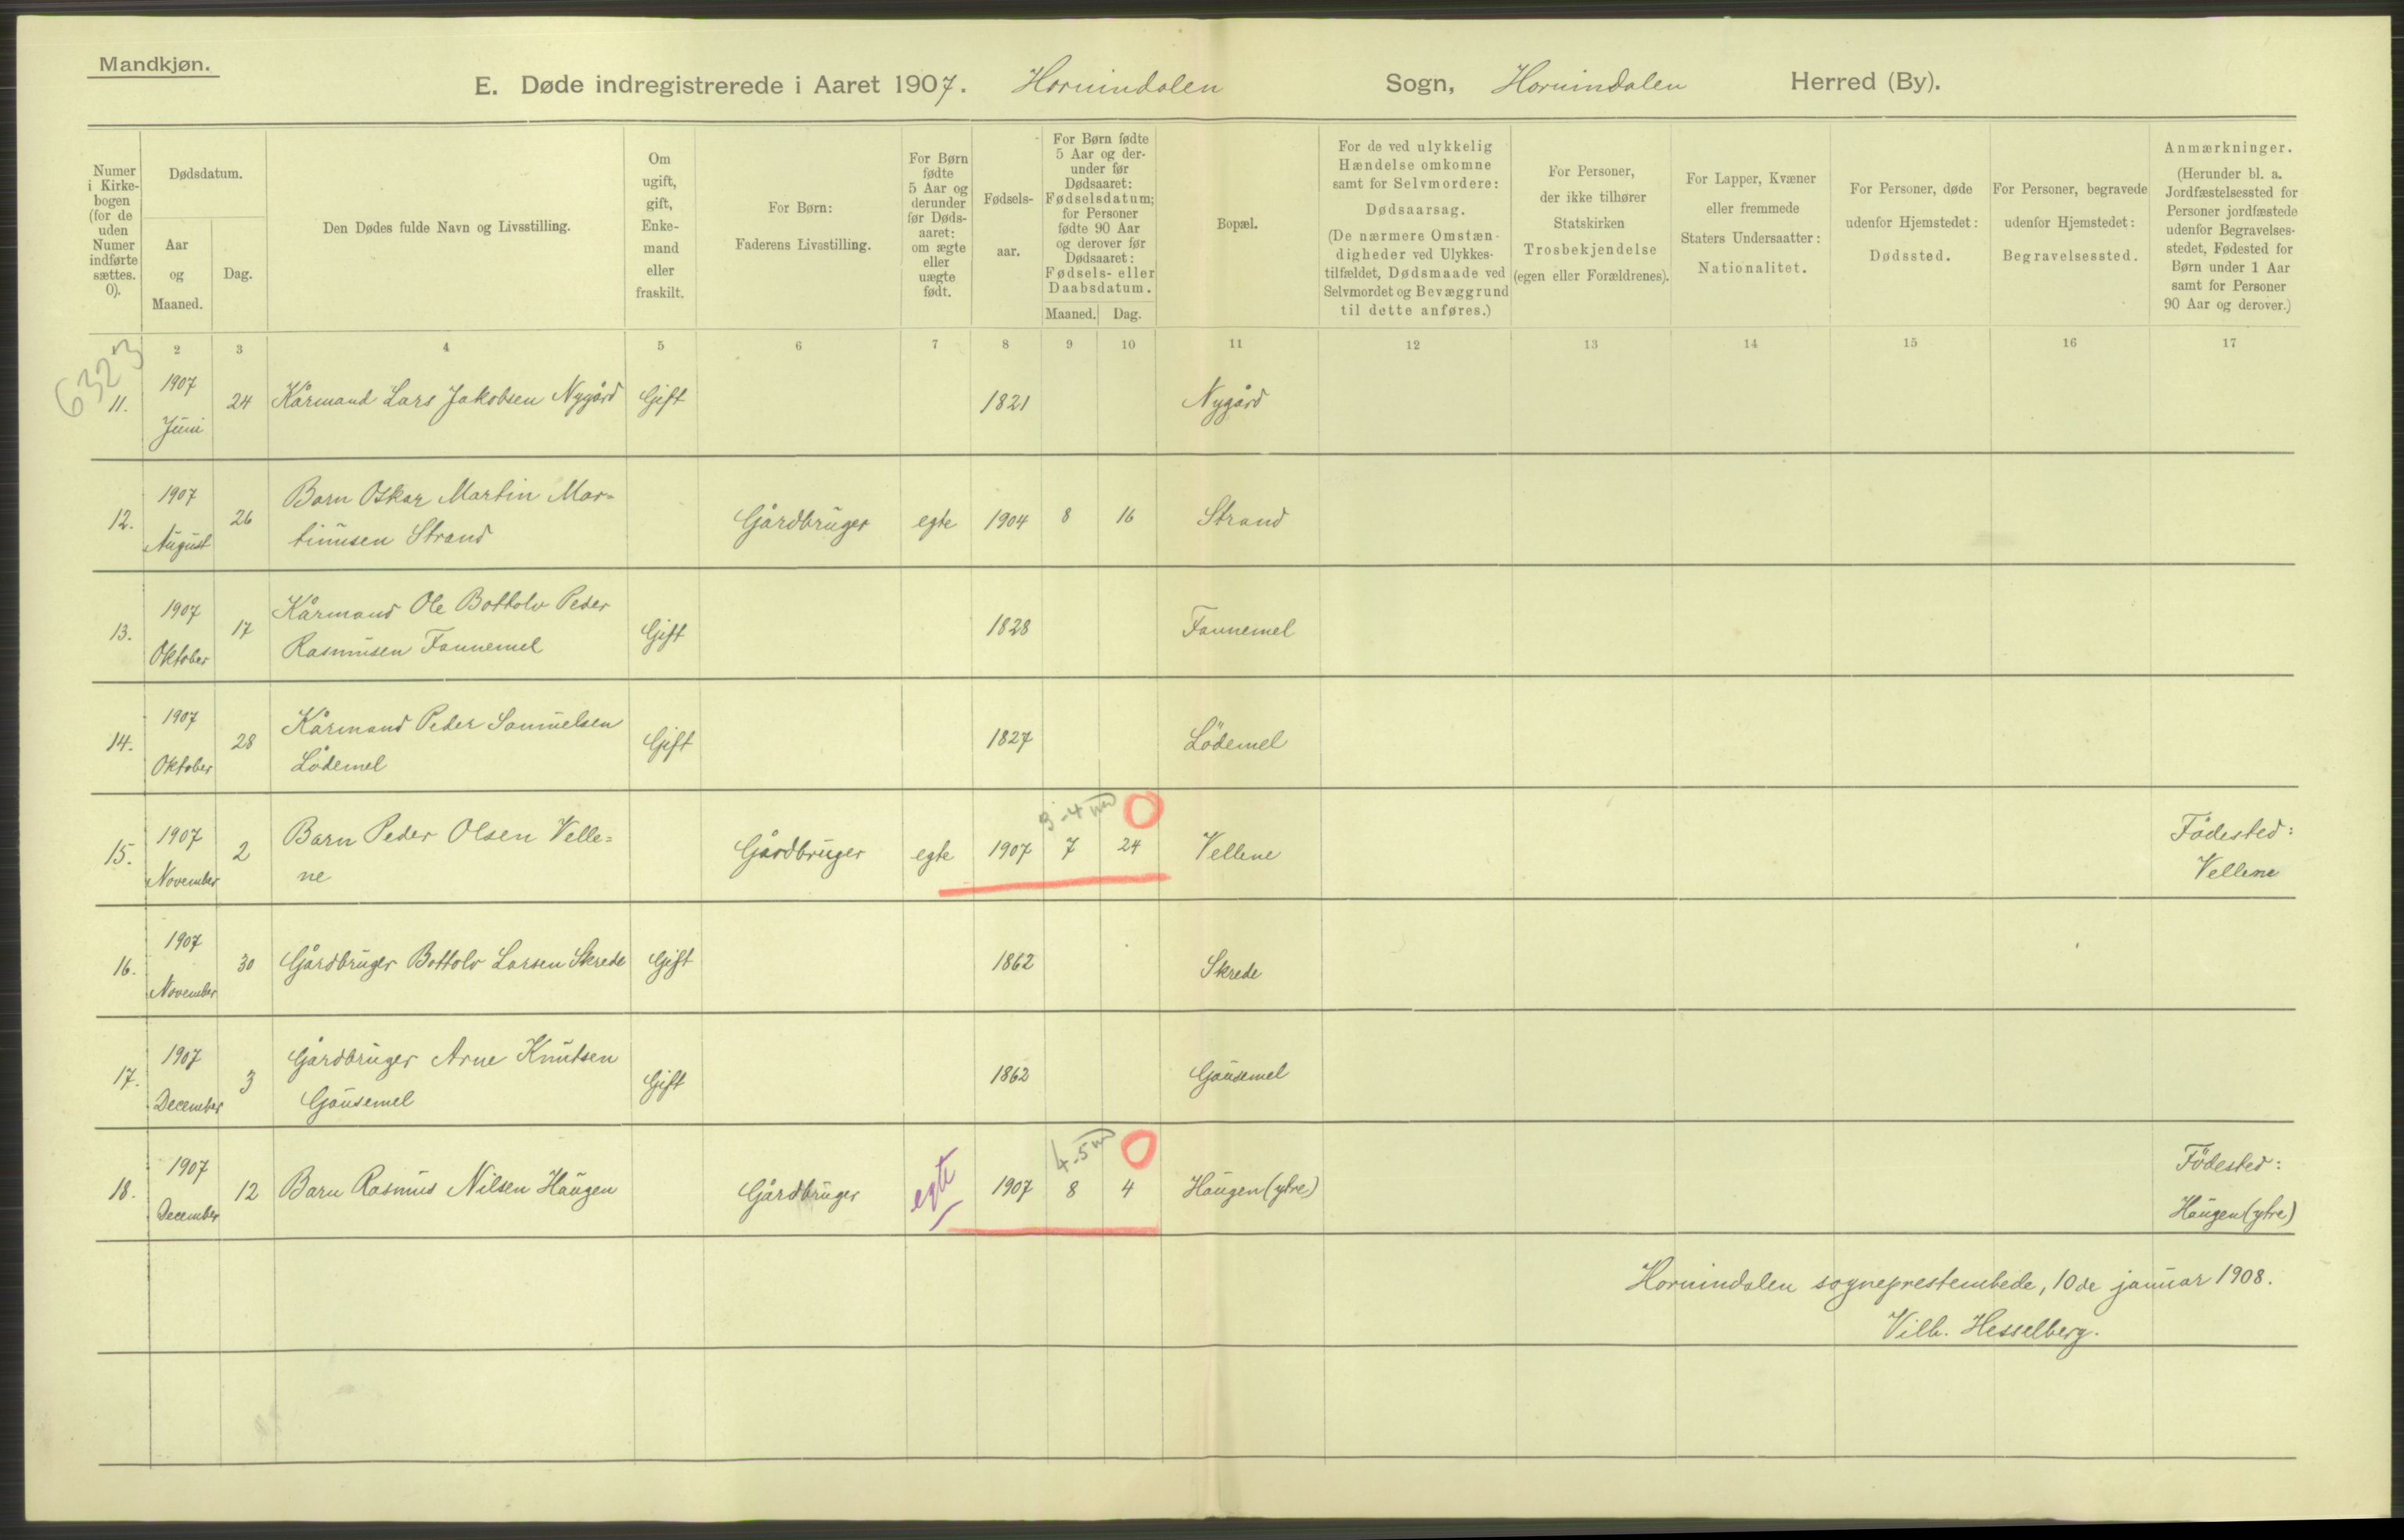 Mandkjøn.
E. Døde indregistrerede i Aaret 1907. Hornindalen Sogn, Hornindalen Herred (By).
Numer i Kirke-bogen (for de uden Numer indførte sættes. 0).
Dødsdatum.
Aar og Maaned.
Dag.
Den Dødes fulde Navn og Livsstilling.
Om ugift, gift, Enke-mand eller fraskilt.
For Børn: Faderens Livsstilling.
For Børn fødte 5 Aar og derunder før Døds-aaret: om ægte eller uægte født.
Fødsels-aar.
For Børn fødte 5 Aar og der-under før Dødsaaret: Fødselsdatum; for Personer fødte 90 Aar og derover før Dødsaaret: Fødsels- eller Daabsdatum.
Maaned. Dag.
Bopæl.
For de ved ulykkelig Hændelse omkomne samt for Selvmordere: Dødsaarsag. (De nærmere Omstæn-digheder ved Ulykkes-tilfældet, Dødsmaade ved Selvmordet og Bevæggrund til dette anføres.)
For Personer, der ikke tilhører Statskirken Trosbekjendelse (egen eller Forældrenes).
For Lapper, Kvæner eller fremmede Staters Undersaatter: Nationalitet.
For Personer, døde udenfor Hjemstedet: Dødssted.
For Personer, begravede udenfor Hjemstedet: Begravelsessted.
Anmærkninger. (Herunder bl. a. Jordfæstelsessted for Personer jordfæstede udenfor Begravelses-stedet, Fødested for Børn under 1 Aar samt for Personer 90 Aar og derover.)
2 3 4 5 6 7 8 9 10 11 12 13 14 15 16 17
6323
11. 1907 Juni 24 Kårmand Lars Jakobsen Nygård Gift 1821 Nygård
12. 1907 August 26 Barn Oskar Martin Mar=
tinusen Strand Gårdbruger egte 1904 8 16 Strand
13. 1907 Oktober 17 Kårmand Ole Bottolv Peder
Rasmusen Fannemel Gift 1828 Fannemel
14. 1907 Oktober 28 Kårmand Peder Samuelsen
Lödemel Gift 1827 Lödemel
3-4 m 0
15. 1907 November 2 Barn Peder Olsen Velle=
ne Gårdbruger egte 1907 7 24 Vellene Födested:
Vellene
16. 1907 November 30 Gårdbruger Bottolv Larsen Skrede Gift 1862 Skrede
17. 1907 December 3 Gårdbruger Arne Knutsen
Gausemel Gift 1862 Gausemel
4-5 m 0
18. 1907 December 12 Barn Rasmus Nilsen Haugen Gårdbruger egte 1907 8 4 Haugen (ytre) Födested:
Haugen (ytre)
Hornindalen sogneprestembede, 10de januar 1908.
Vilh. Hesselberg.